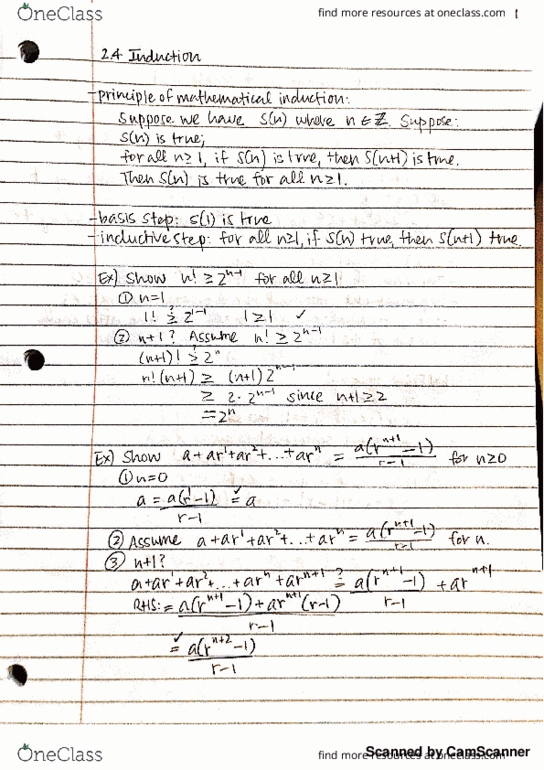 OneClass
find more resources at oneclass.com
2.4 Induction
-principle of mathematical induction:
Suppose we have S(n) where n ∈ ℤ. Suppose:
S(n) is true;
for all n≥1, if S(n) is true, then S(n+1) is true.
Then S(n) is true for all n≥1.
-basis step: S(1) is true
-inductive step: for all n≥1, if S(n) true, then S(n+1) true.
Ex) Show n! ≥ 2^(n-1) for all n≥1
① n=1
1! ≥? 2^(1-1) 1≥1 ✓
② n+1? Assume n! ≥ 2^(n-1)
(n+1)! ≥? 2^n
n!(n+1) ≥ (n+1)2^(n-1)
≥ 2·2^(n-1) since n+1≥2
=2^n
Ex) Show a+ar^1+ar^2+...+ar^n = a(r^(n+1)-1)/(r-1) for n≥0
① n=0
a = a(r^1-1)/(r-1) =✓ a
② Assume a+ar^1+ar^2+...+ar^n = a(r^(n+1)-1)/(r-1) for n.
③ n+1?
a+ar^1+ar^2+...+ar^n+ar^(n+1) =? a(r^(n+1)-1)/(r-1) + ar^(n+1)
RHS: = a(r^(n+1)-1)+ar^(n+1)(r-1)/(r-1)
=✓ a(r^(n+2)-1)/(r-1)
OneClass
find more resources at oneclass.com
Scanned by CamScanner